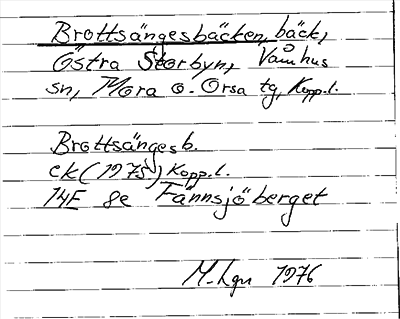 Brottsängesbäcken, bäck,
Östra Storbyn, Våmhus
sn, Mora o. Orsa tg, Kopp.l.
Brottsängesb.
ek (1975) Kopp.l.
14E 8e Fännsjöberget
M. Lgn 1976